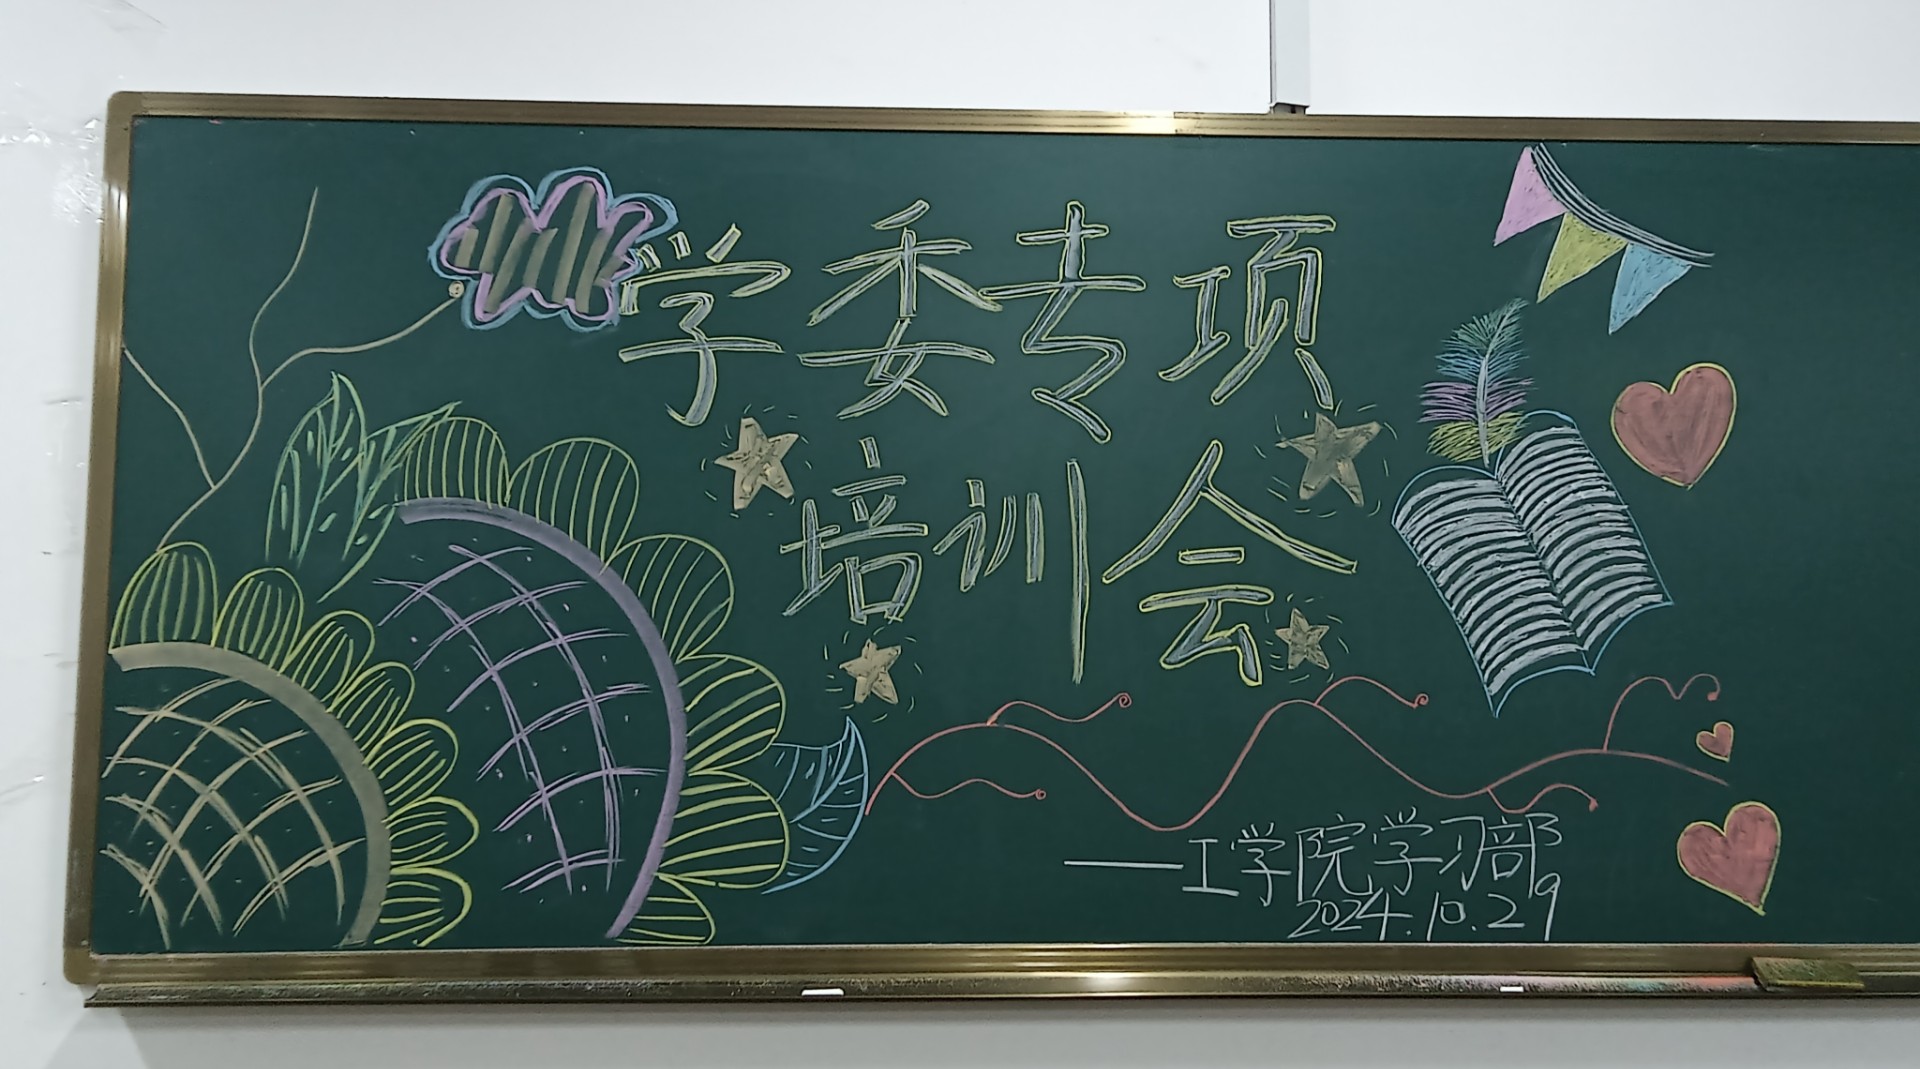 学委专项
培训会
——工学院学习部
2024.10.29